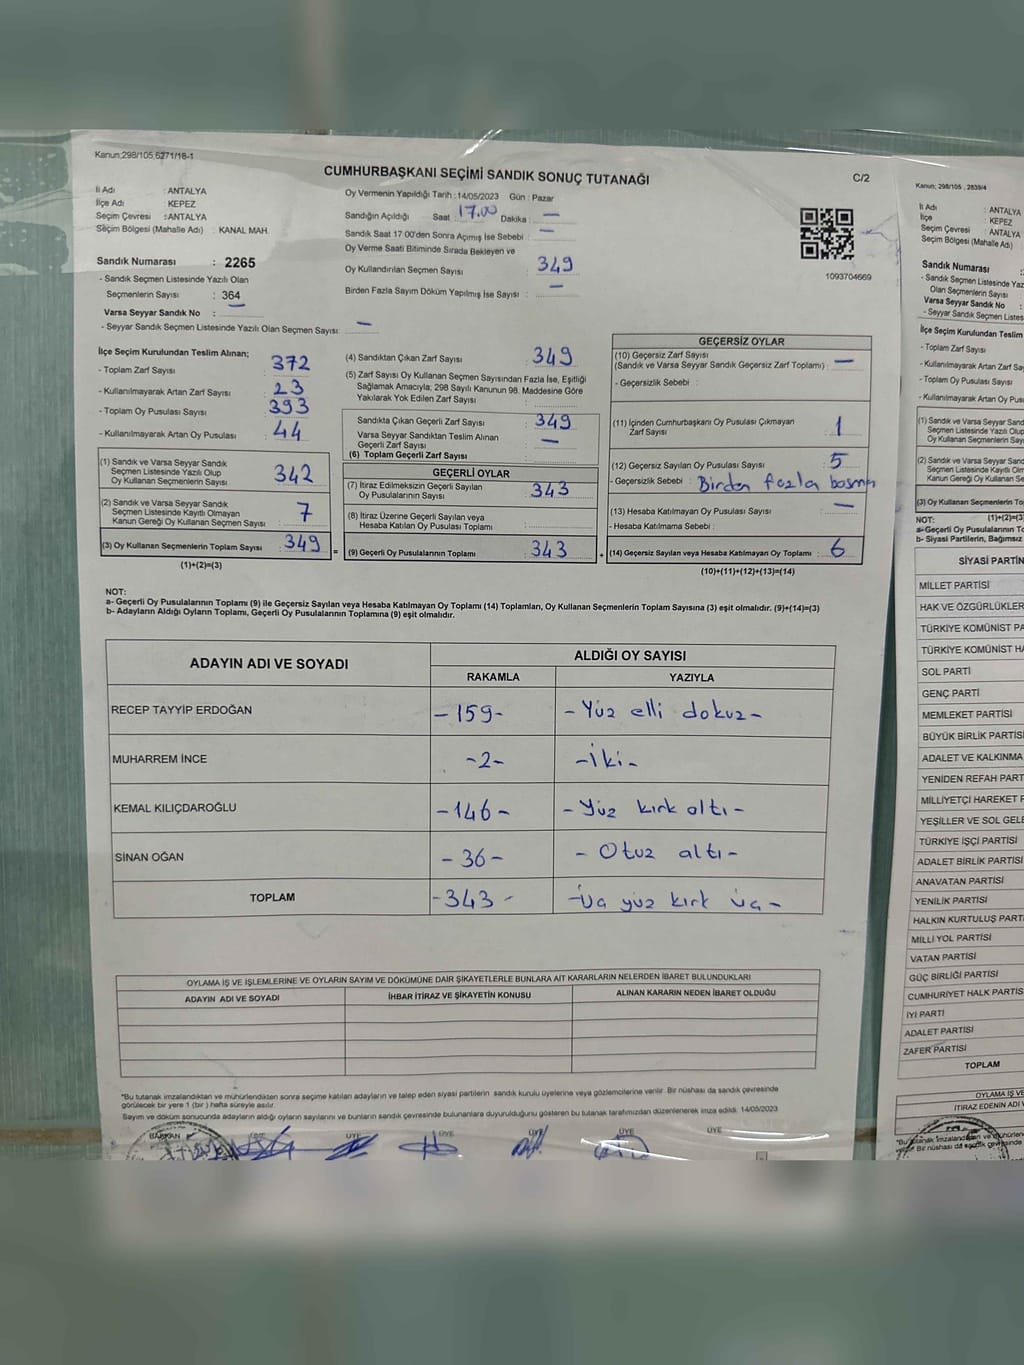 Kanun;298/105,6271/18-1
CUMHURBAŞKANI SEÇİMİ SANDIK SONUÇ TUTANAĞI
C/2
İl Adı : ANTALYA
İlçe Adı : KEPEZ
Seçim Çevresi : ANTALYA
Seçim Bölgesi (Mahalle Adı) : KANAL MAH.
Sandık Numarası : 2265
- Sandık Seçmen Listesinde Yazılı Olan
Seçmenlerin Sayısı : 364
Varsa Seyyar Sandık No : —
- Seyyar Sandık Seçmen Listesinde Yazılı Olan Seçmen Sayısı: —
Oy Vermenin Yapıldığı Tarih :14/05/2023 Gün : Pazar
Sandığın Açıldığı Saat 17.00 Dakika : —
Sandık Saat 17:00'den Sonra Açımış İse Sebebi : —
Oy Verme Saati Bitiminde Sırada Bekleyen ve
Oy Kullandırılan Seçmen Sayısı : 349
Birden Fazla Sayım Döküm Yapılmış İse Sayısı : —
1093704669
İlçe Seçim Kurulundan Teslim Alınan;
- Toplam Zarf Sayısı : 372
- Kullanılmayarak Artan Zarf Sayısı : 23
- Toplam Oy Pusulası Sayısı : 393
- Kullanılmayarak Artan Oy Pusulası : 44
(1) Sandık ve Varsa Seyyar Sandık
Seçmen Listesinde Yazılı Olup
Oy Kullanan Seçmenlerin Sayısı : 342
(2) Sandık ve Varsa Seyyar Sandık
Seçmen Listesinde Kayıtlı Olmayan
Kanun Gereği Oy Kullanan Seçmen Sayısı : 7
(3) Oy Kullanan Seçmenlerin Toplam Sayısı : 349 =
(1)+(2)=(3)
(4) Sandıktan Çıkan Zarf Sayısı : 349
(5) Zarf Sayısı Oy Kullanan Seçmen Sayısından Fazla İse, Eşitliği
Sağlamak Amacıyla; 298 Sayılı Kanunun 98. Maddesine Göre
Yakılarak Yok Edilen Zarf Sayısı :
Sandıkta Çıkan Geçerli Zarf Sayısı : 349
Varsa Seyyar Sandıktan Teslim Alınan
Geçerli Zarf Sayısı : —
(6) Toplam Geçerli Zarf Sayısı :
GEÇERLİ OYLAR
(7) İtiraz Edilmeksizin Geçerli Sayılan
Oy Pusulalarının Sayısı : 343
(8) İtiraz Üzerine Geçerli Sayılan veya
Hesaba Katılan Oy Pusulası Toplamı :
(9) Geçerli Oy Pusulalarının Toplamı : 343 +
GEÇERSİZ OYLAR
(10) Geçersiz Zarf Sayısı
(Sandık ve Varsa Seyyar Sandık Geçersiz Zarf Toplamı) : —
- Geçersizlik Sebebi :
(11) İçinden Cumhurbaşkanı Oy Pusulası Çıkmayan
Zarf Sayısı : 1
(12) Geçersiz Sayılan Oy Pusulası Sayısı : 5
- Geçersizlik Sebebi : Birden fazla basma
(13) Hesaba Katılmayan Oy Pusulası Sayısı : —
- Hesaba Katılmama Sebebi :
(14) Geçersiz Sayılan veya Hesaba Katılmayan Oy Toplamı : 6
(10)+(11)+(12)+(13)=(14)
NOT:
a- Geçerli Oy Pusulalarının Toplamı (9) ile Geçersiz Sayılan veya Hesaba Katılmayan Oy Toplamı (14) Toplamları, Oy Kullanan Seçmenlerin Toplam Sayısına (3) eşit olmalıdır. (9)+(14)=(3)
b- Adayların Aldığı Oyların Toplamı, Geçerli Oy Pusulalarının Toplamına (9) eşit olmalıdır.
ADAYIN ADI VE SOYADI ALDIĞI OY SAYISI
RAKAMLA YAZIYLA
RECEP TAYYİP ERDOĞAN -159- - Yüz elli dokuz -
MUHARREM İNCE -2- -İki-
KEMAL KILIÇDAROĞLU -146- - Yüz kırk altı -
SİNAN OĞAN -36- - Otuz altı -
TOPLAM -343- -Üç yüz kırk üç-
OYLAMA İŞ VE İŞLEMLERİNE VE OYLARIN SAYIM VE DÖKÜMÜNE DAİR ŞİKAYETLERLE BUNLARA AİT KARARLARIN NELERDEN İBARET BULUNDUKLARI
ADAYIN ADI VE SOYADI İHBAR İTİRAZ VE ŞİKAYETİN KONUSU ALINAN KARARIN NEDEN İBARET OLDUĞU
*Bu tutanak imzalandıktan ve mühürlendikten sonra seçime katılan adayların ve talep eden siyasi partilerin sandık kurulu üyelerine veya gözlemcilerine verilir. Bir nüshası da sandık çevresinde
görülecek bir yere 1 (bir) hafta süreyle asılır.
Sayım ve döküm sonucunda adayların aldığı oyların sayılarını ve bunların sandık çevresinde bulunanlara duyurulduğunu gösteren bu tutanak tarafımızdan düzenlenerek imza edildi. 14/05/2023
BAŞKAN ÜYE ÜYE ÜYE ÜYE ÜYE
Kanun; 298/105 , 2839/4
İl Adı : ANTALYA
İlçe : KEPEZ
Seçim Çevresi : ANTALYA
Seçim Bölgesi (Mahalle Adı)
Sandık Numarası
- Sandık Seçmen Listesinde
Olan Seçmenlerin Sayısı
Varsa Seyyar Sandık No
İlçe Seçim Kurulundan Teslim
- Toplam Zarf Sayısı
- Kullanılmayarak Artan
- Toplam Oy Pusulası Sayısı
- Kullanılmayarak Artan
(1) Sandık ve Varsa Seyyar
Seçmen Listesinde Yazılı
Oy Kullanan Seçmenlerin
(2) Sandık ve Varsa Seyyar
Seçmen Listesinde
Kanun Gereği Oy
(3) Oy Kullanan Seçmenlerin
NOT: (1)+(2)=(3)
a- Geçerli Oy Pusulalarının
b- Siyasi Partilerin, Bağımsız
SİYASİ
MİLLET PARTİSİ
HAK VE ÖZGÜRLÜKLER
TÜRKİYE KOMÜNİST
TÜRKİYE KOMÜNİST
SOL PARTİ
GENÇ PARTİ
MEMLEKET PARTİSİ
BÜYÜK BİRLİK PARTİSİ
ADALET VE KALKINMA
YENİDEN REFAH
MİLLİYETÇİ HAREKET
YEŞİLLER VE SOL
TÜRKİYE İŞÇİ PARTİSİ
ADALET BİRLİK PARTİSİ
ANAVATAN PARTİSİ
YENİLİK PARTİSİ
HALKIN KURTULUŞ
MİLLİ YOL PARTİSİ
VATAN PARTİSİ
GÜÇ BİRLİĞİ PARTİSİ
CUMHURİYET HALK
İYİ PARTİ
ADALET PARTİSİ
ZAFER PARTİSİ
TOPLAM
OYLAMA İŞ VE
İTİRAZ EDENİN ADI